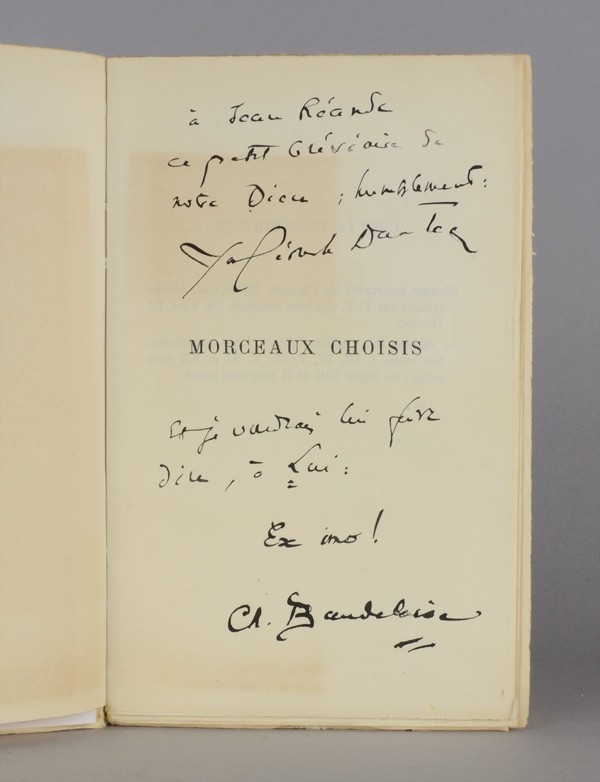 à Jean
ce petit bréviaire de
notre Dieu ; humblement :
MORCEAUX CHOISIS
Et je voudrais lui faire
dire, à Lui :
Ex imo !
Ch. Baudelaire